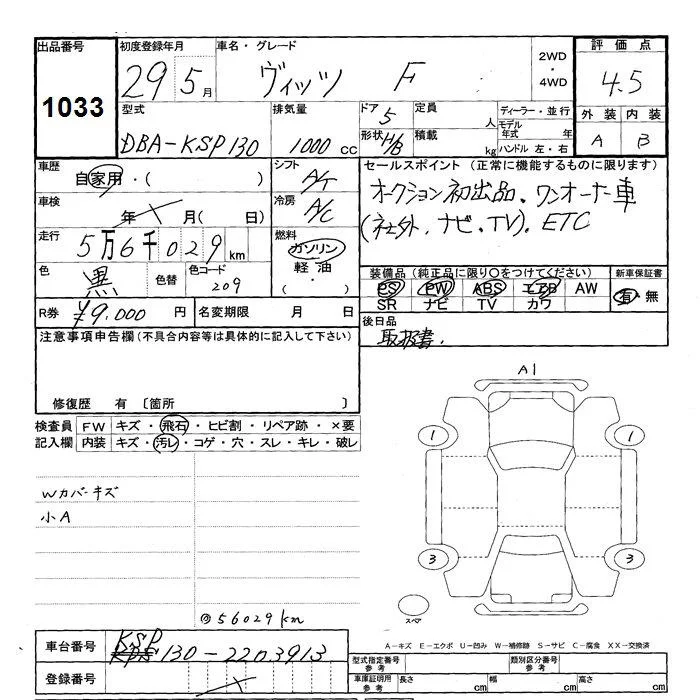 出品番号
1033
初度登録年月
29 5月
車名・グレード
ヴィッツ F
2WD
・
4WD
評価点
4.5
外装 内装
A B
型式
DBA-KSP130
排気量
1000 cc
ドア
5
形状
H/B
定員
人
積載
kg
ディーラー・並行
モデル年式 年
ハンドル 左・右
車歴
自家用・( )
車検
年 月( 日)
走行
5万6千029km
色
黒
色替
色コード
209
シフト
A/T
冷房
A/C
燃料
ガソリン
軽油
( ・ )
セールスポイント (正常に機能するものに限ります)
オークション初出品、ワンオーナー車
(社外、ナビ、TV)、ETC
装備品(純正品に限り○をつけてください)
PS PW ABS エアB AW
SR ナビ TV カワ
新車保証書
有・無
R券 ¥9,000 円
名変期限 月 日
後日品
取扱書、
注意事項申告欄(不具合内容等は具体的に記入して下さい)
修復歴 有 〔箇所 〕
検査員 FW キズ・飛石・ヒビ割・リペア跡・×要
記入欄 内装 キズ・汚レ・コゲ・穴・スレ・キレ・破レ
Wカバーキズ
小A
@56029km
A1
1 1
3 3
スペア
A-キズ E-エクボ U-凹み W-補修跡 S-サビ C-腐食 XX-交換済
車台番号
KSP
130-2203913
登録番号
型式指定番号
参考
類別区分番号
参考
車庫証明用
参考
長さ cm 幅 cm 高さ cm